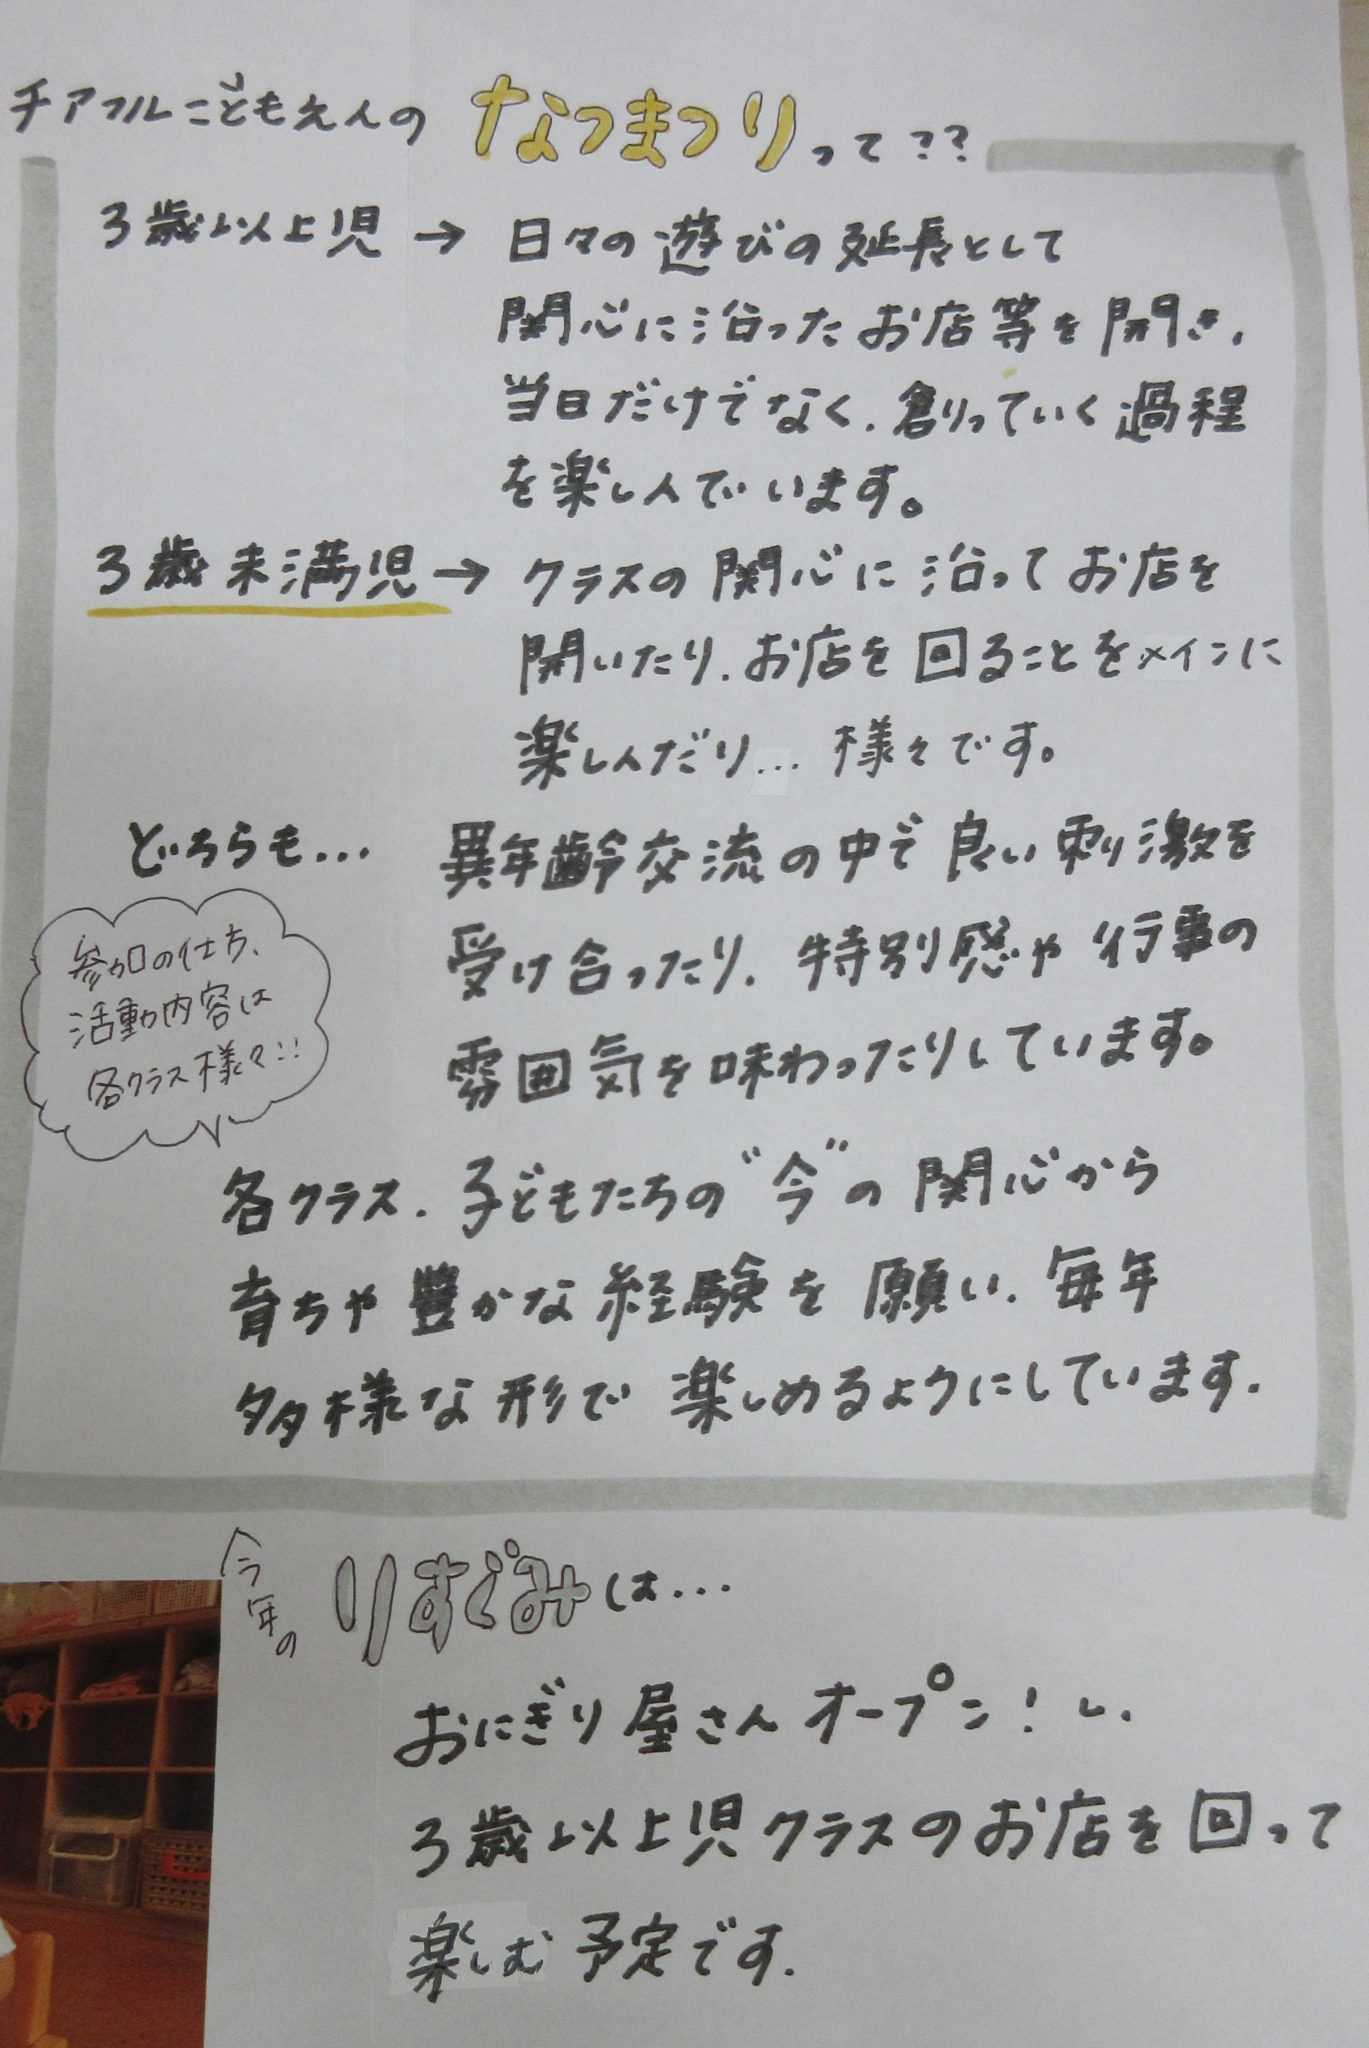 チアフルこどもえんの なつまつりって??
3歳以上児 → 日々の遊びの延長として
関心に沿ったお店等を開き、
当日だけでなく、創っていく過程
を楽しんでいます。
3歳未満児 → クラスの関心に沿ってお店を
開いたり、お店を回ることをメインに
楽しんだり… 様々です。
どちらも… 異年齢交流の中で良い刺激を
受け合ったり、特別感や行事の
雰囲気を味わったりしています。
参加の仕方、
活動内容は
各クラス様々!!
各クラス、子どもたちの"今"の関心から
育ちや豊かな経験を願い、毎年
多様な形で楽しめるようにしています.
今年の りすぐみは…
おにぎり屋さんオープン!し、
3歳以上児クラスのお店を回って
楽しむ予定です.